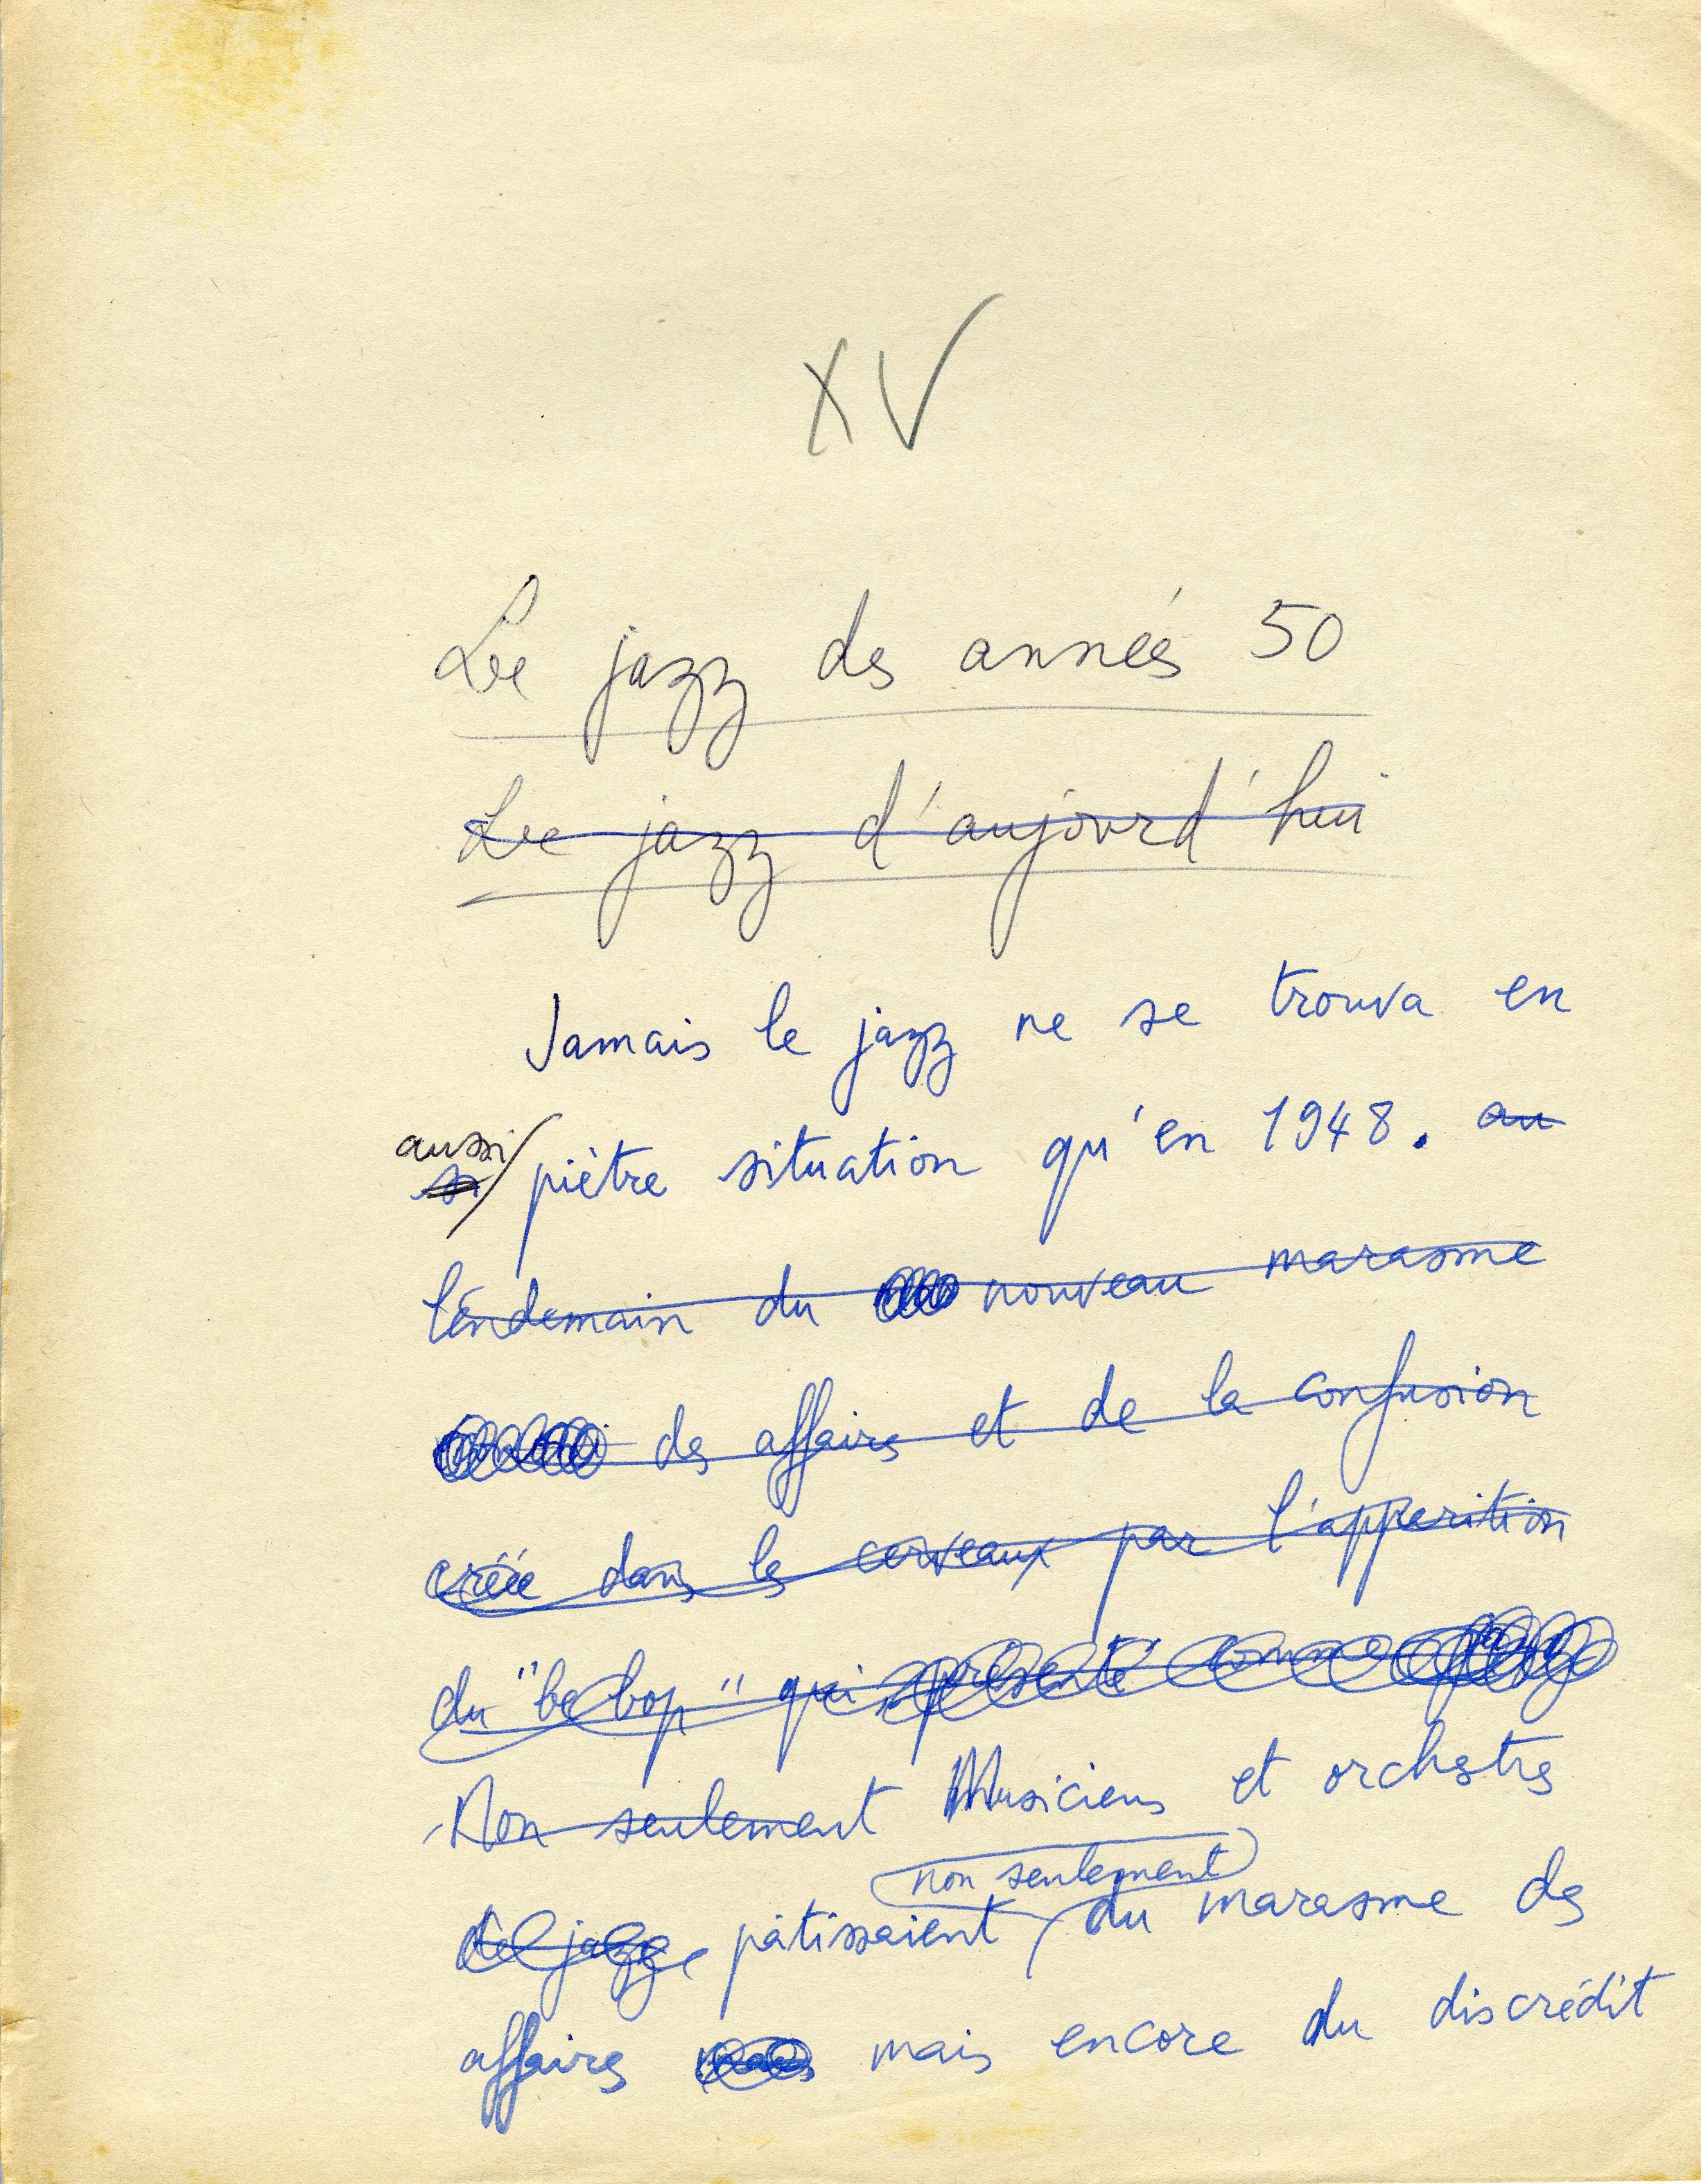 XV
Le jazz des années 50
Le jazz d'aujourd'hui
Jamais le jazz ne se trouva en
aussi
si piètre situation qu'en 1948. au
lendemain du nouveau marasme
des affaires et de la confusion
créée dans les cerveaux par l'apparition
du "be bop" qui présenté comme
Non seulement Musiciens et orchestres
non seulement
de jazz pâtissaient du marasme des
affaires mais mais encore du discrédit